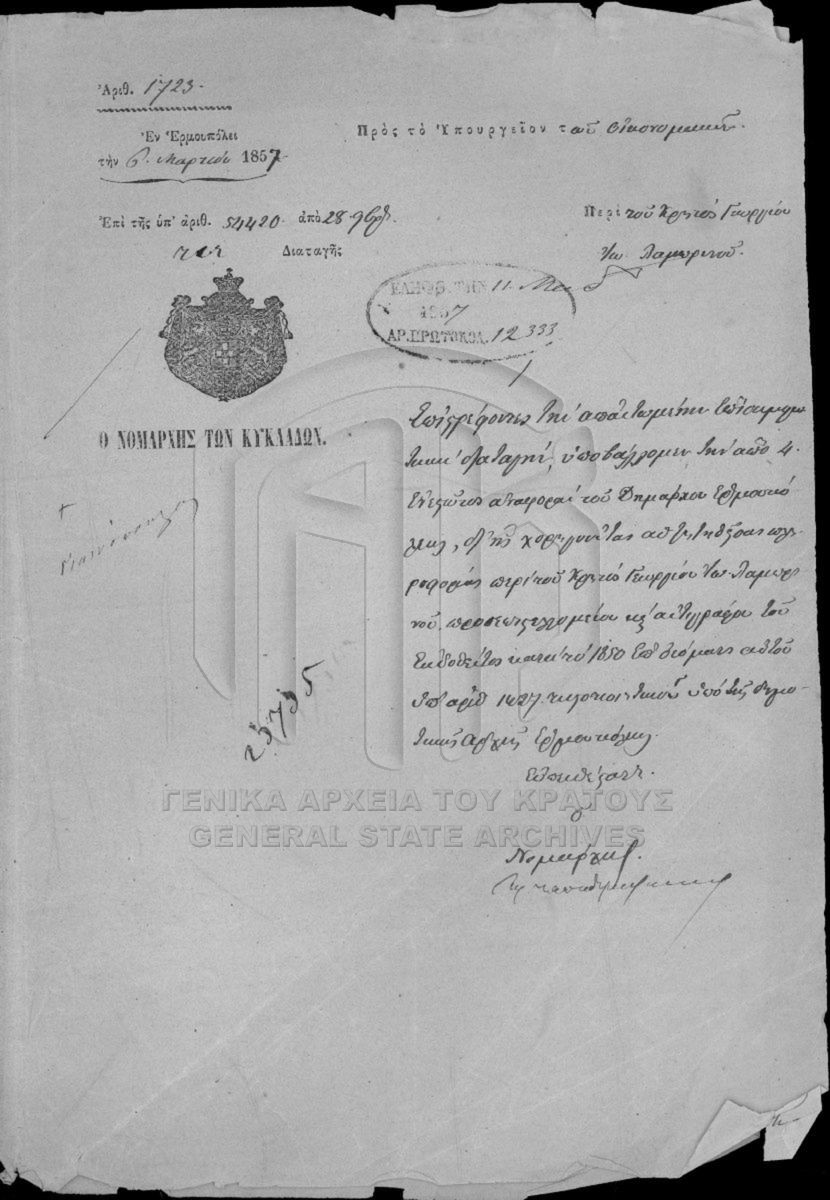 Ἀριθ. 1723.
Ἐν Ἑρμουπόλει
τὴν 6. Μαρτίου 1857
Πρὸς τὸ Ὑπουργεῖον τῶν Οἰκονομικῶν.
Ἐπὶ τῆς ὑπ' ἀριθ. 54420. ἀπὸ 28. 9βρ.
Διαταγῆς
Περὶ τοῦ Χρηστοῦ Γεωργίου
Λαμπρινοῦ.
ΕΛΗΦΘ. ΤΗΝ 11
1857
ΑΡ. ΠΡΩΤΟΚΟΛ. 12333
Ο ΝΟΜΑΡΧΗΣ ΤΩΝ ΚΥΚΛΑΔΩΝ.
Ἐπιστρέφοντες τὴν ἀπαιτουμένην
διαταγήν, ὑποβάλλομεν τὴν ἀπὸ 4.
ἐνεστῶτος ἀναφορὰν τοῦ Δημάρχου Ἑρμουπό
λεως, δι' ἧς χορηγοῦνται αἱ ζητηθεῖσαι πλη
ροφορίαι περὶ τοῦ Χρηστοῦ Γεωργίου Λαμπρι
νοῦ, ἀντιγράφου τοῦ
ἐκδοθέντος κατὰ τὸ 1850
ὑπ' ἀριθ. ὑπὸ τῆς δημο
τικῆς Ἀρχῆς Ἑρμουπόλεως.
Εὐπειθέστατ.
ὁ
Νομάρχης
25735
ΓΕΝΙΚΑ ΑΡΧΕΙΑ ΤΟΥ ΚΡΑΤΟΥΣ
GENERAL STATE ARCHIVES